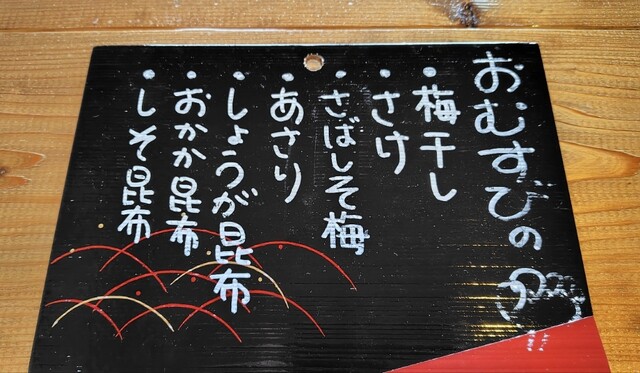 おむすびの
・梅干し
・さけ
・さばしそ梅
・あさり
・しょうが昆布
・おかか昆布
・しそ昆布